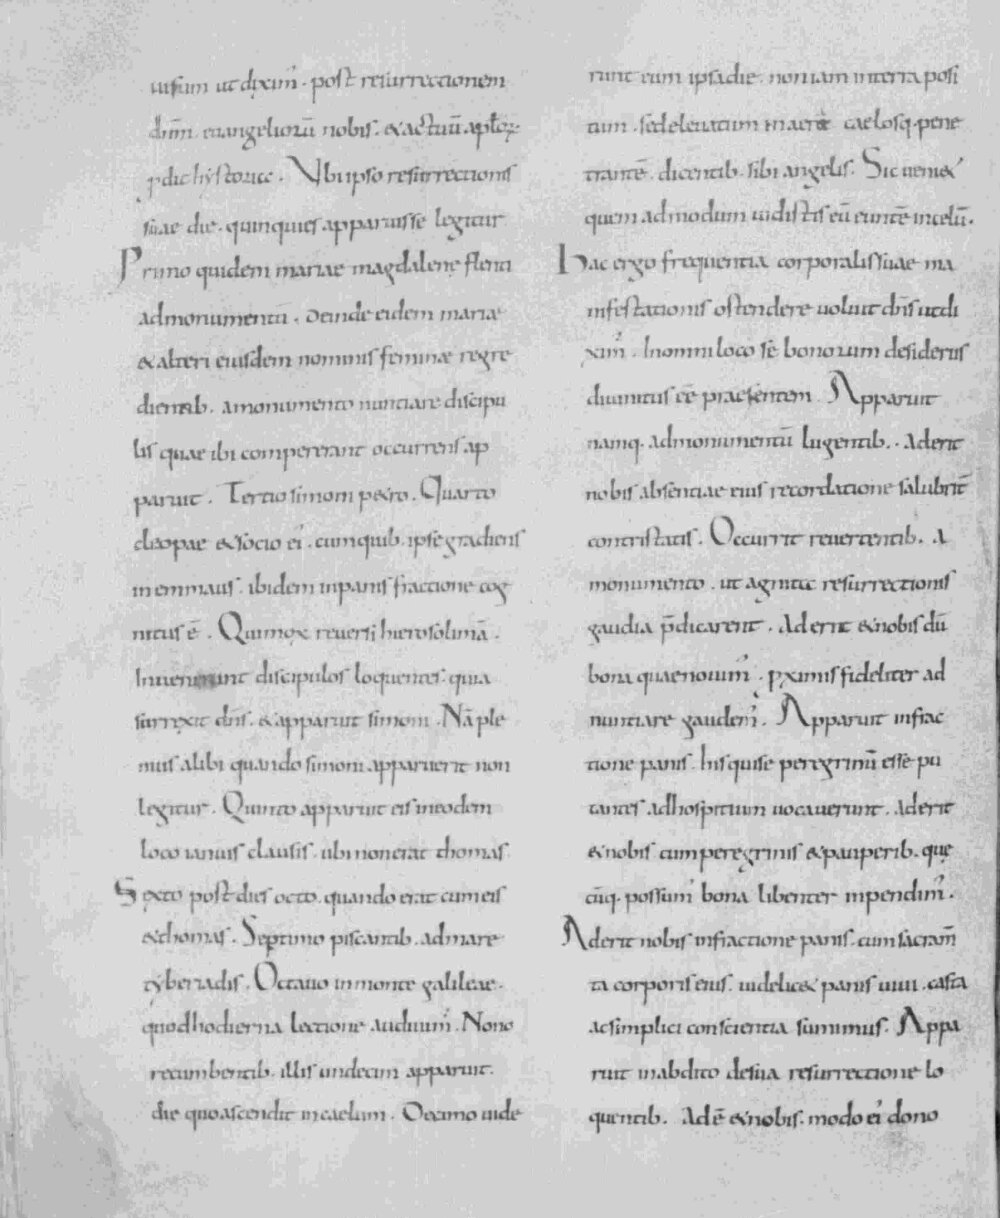 uisum ut dixim̄ʼ. post resurrectionem
dn̄m. euangeliorū nobis. & actuū aplōꝝ
ꝓdit hystoria. Nb ipso resurrectionis
suae die. quinquies apparuisse legitur
Primo quidem mariae magdalenę flenti
ad monumentū. Deinde eidem mariae
& alteri eiusdem nominis feminae regre
dientib. a monumento nuntiare discipu
lis quae ibi compererant occurrens ap
paruit. Tertio simoni petro. Quarto
cleopae & socio eiʼ. cum quib. ipse gradiens
in emmaus. ibidem in panis fractione cog
nitus ē. Qui mox reuersi hierosolimā.
Inuenerunt discipulos loquentes. quia
surrexit dn̄s. & apparuit simoni. Nā ple
nius alibi quando simoni apparuerit non
legitur. Quinto apparuit eis in eodem
loco ianuis clausis. ubi non erat thomas.
Sexto post dies octo. quando erat cum eis
& thomas. Septimo piscantib. ad mare
tyberiadis. Octauo in monte galileae.
quod hodierna lectione audiuim̄ʼ. Nono
recumbentib. illis undecim apparuit.
die quo ascendit in caelum. Decimo uide
runt eum ipsa die. non iam in terra posi
tum. sed eleuatum in aere caelosq. pene
trantē. dicentib. sibi angelis. Sic ueni&ʼ
quem ad modum uidistis eū euntē in celū.
Hac ergo frequentia corporalis suae ma
nifestationis ostendere uoluit dn̄s ut di
ximʼ. In omni loco se bonorum desideriis
diuinitus eē praesentem. Apparuit
namq. ad monumentū lugentib.. aderit
nobis absentiae eius recordatione salubrit̄
contristatis. Occurrit reuertentib. a
monumento. ut agnitae resurrectionis
gaudia p̄dicarent. Aderit & nobis dū
bona quae nouim̄ʼ. ꝓximis fideliter ad
nuntiare gaudem̄ʼ. Apparuit in frac
tione panis. his qui se peregrinū esse pu
tantes ad hospitium uocauerunt. Aderit
& nobis cum peregrinis & pauperib. quę
cūq. possumʼ bona libenter inpendim̄ʼ.
Aderit nobis in fractione panis. cum sacram̄
ta corporis eius. uidelic& panis uiui. casta
ac simplici conscientia sumimus. Appa
ruit in abdito de sua resurrectione lo
quentib. Adē & nobis. modo eiʼ dono